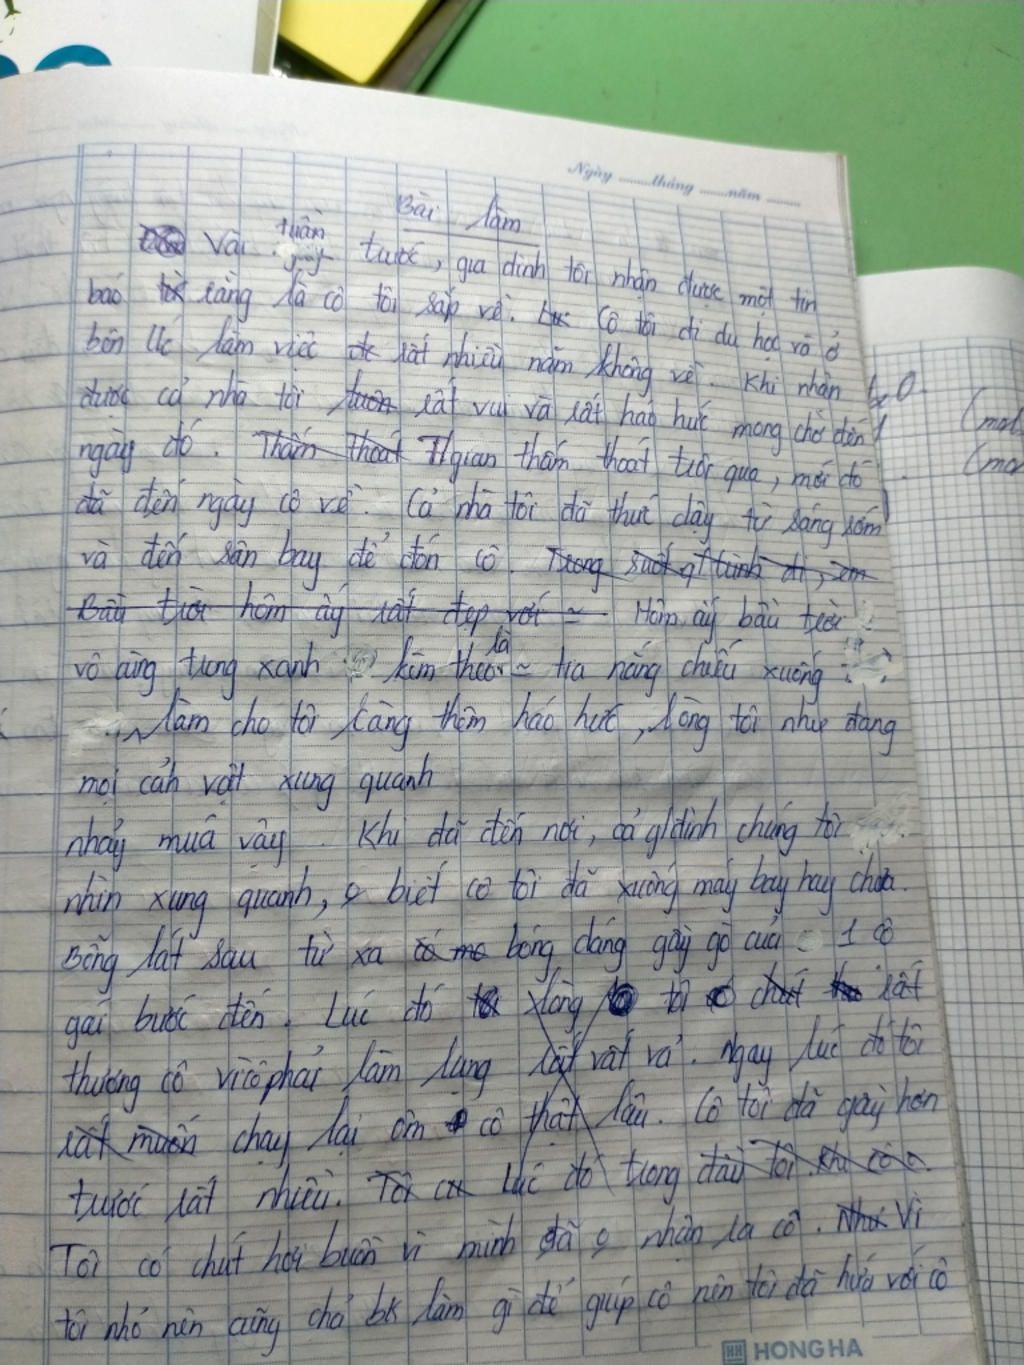 Ngày ........tháng ......năm ........
Bài làm
Vài tuần trước, gia đình tôi nhận được một tin
báo rằng là cô tôi sắp về. Cô tôi đi du học và ở
bên Úc làm việc rất nhiều năm không về. Khi nhận
được cả nhà tôi rất vui và rất háo hức mong chờ đến
ngày đó. Thấm thoát Tgian thấm thoát trôi qua, mới đó
đã đến ngày cô về. Cả nhà tôi đã thức dậy từ sáng sớm
và đến sân bay để đón cô. Trong suốt qt trình đi, em
Bầu trời hôm ấy rất đẹp với Hôm ấy bầu trời
vô cùng trong xanh kèm theo là tia nắng chiếu xuống
làm cho tôi càng thêm háo hức, lòng tôi như đang
mọi cảnh vật xung quanh
nhảy múa vậy. Khi đã đến nơi, cả gđình chúng tôi
nhìn xung quanh, biết cô tôi đã xuống máy bay hay chưa.
Bỗng lát sau từ xa có bóng dáng gầy gò của 1 cô
gái bước đến. Lúc đó lòng tôi chút rất
thương cô vì cô phải làm lụng rất vất vả. Ngay lúc đó tôi
rất muốn chạy lại ôm cô thật lâu. Cô tôi đã gầy hơn
trước rất nhiều. Lúc đó trong đầu tôi khi cô
Tôi có chút hơi buồn vì mình đã nhận ra cô. Như Vì
tôi nhỏ nên cũng chả bk làm gì để giúp cô nên tôi đã hứa với cô
HH HONG HA